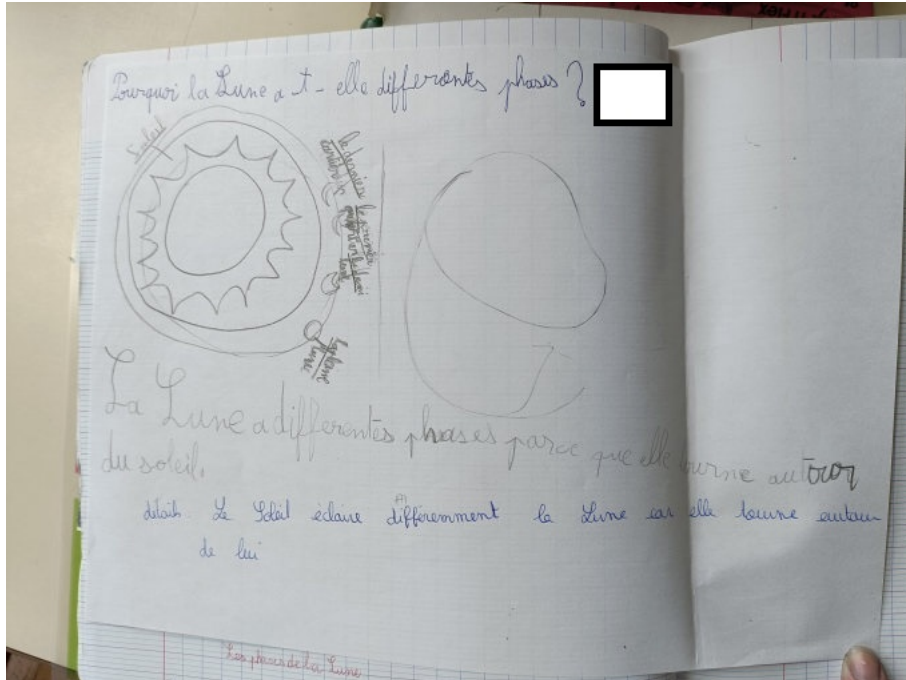 Pourquoi la Lune a t-elle differentes phases ?
Soleil
le dernier
le premier
la pleine
lune
La Lune a differentes phases parce que elle tourne autour
du soleil.
détails. Le Soleil éclaire différemment la Lune car elle tourne autour
de lui
Les phases de la Lune